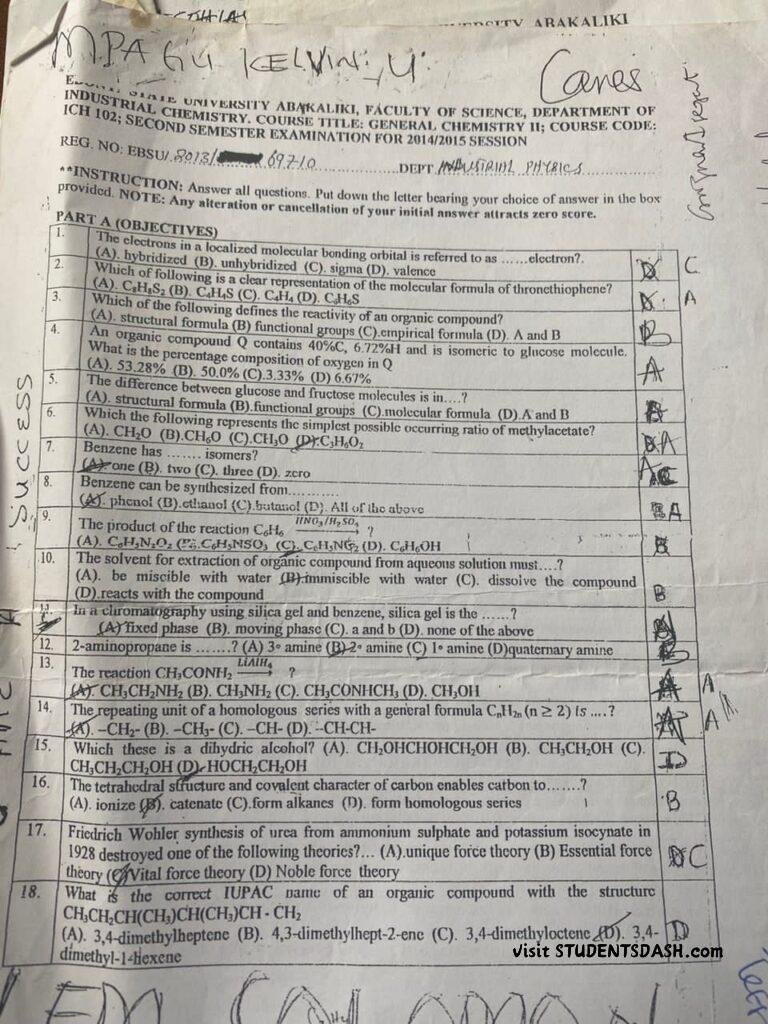 VERSITY ABAKALIKI
MPAGU KELVIN. U.
Canes
STATE UNIVERSITY ABAKALIKI, FACULTY OF SCIENCE, DEPARTMENT OF
INDUSTRIAL CHEMISTRY. COURSE TITLE: GENERAL CHEMISTRY II; COURSE CODE:
ICH 102; SECOND SEMESTER EXAMINATION FOR 2014/2015 SESSION
REG. NO: EBSU/2013/ 69710 DEPT INDUSTRIAL PHYSICS
**INSTRUCTION: Answer all questions. Put down the letter bearing your choice of answer in the box
provided. NOTE: Any alteration or cancellation of your initial answer attracts zero score.
PART A (OBJECTIVES)
1. The electrons in a localized molecular bonding orbital is referred to as ......electron?.
(A). hybridized (B). unhybridized (C). sigma (D). valence D C
2. Which of following is a clear representation of the molecular formula of thronethiophene?
(A). C₈H₈S₂ (B). C₄H₄S (C). C₄H₄ (D). C₆H₆S D. A
3. Which of the following defines the reactivity of an organic compound?
(A). structural formula (B) functional groups (C).empirical formula (D). A and B B
4. An organic compound Q contains 40%C, 6.72%H and is isomeric to glucose molecule.
What is the percentage composition of oxygen in Q
(A). 53.28% (B). 50.0% (C).3.33% (D) 6.67% A
5. The difference between glucose and fructose molecules is in....?
(A). structural formula (B).functional groups (C).molecular formula (D).A and B
6. Which the following represents the simplest possible occurring ratio of methylacetate?
(A). CH₂O (B).CH₆O (C).CH₃O (D).C₃H₆O₂ A
7. Benzene has ....... isomers?
(A).one (B). two (C). three (D). zero A C
8. Benzene can be synthesized from...........
(A). phenol (B).ethanol (C).butanol (D). All of the above B A
9. The product of the reaction C₆H₆ HNO₃/H₂SO₄ → ?
(A). C₆H₅N₂O₂ (B). C₆H₅NSO₃ (C). C₆H₅NO₂ (D). C₆H₆OH B
10. The solvent for extraction of organic compound from aqueous solution must....?
(A). be miscible with water (B).immiscible with water (C). dissolve the compound
(D).reacts with the compound B
11. In a chromatography using silica gel and benzene, silica gel is the ......?
(A) fixed phase (B). moving phase (C). a and b (D). none of the above
12. 2-aminopropane is .......? (A) 3° amine (B) 2° amine (C) 1° amine (D)quaternary amine B
13. The reaction CH₃CONH₂ LiAlH₄ → ?
(A). CH₃CH₂NH₂ (B). CH₃NH₂ (C). CH₃CONHCH₃ (D). CH₃OH A A
14. The repeating unit of a homologous series with a general formula CₙH₂ₙ (n ≥ 2) is ....?
(A). –CH₂- (B). –CH₃- (C). –CH- (D). –CH-CH- A A
15. Which these is a dihydric alcohol? (A). CH₂OHCHOHCH₂OH (B). CH₃CH₂OH (C).
CH₃CH₂CH₂OH (D).HOCH₂CH₂OH D
16. The tetrahedral structure and covalent character of carbon enables catbon to......?
(A). ionize (B). catenate (C).form alkanes (D). form homologous series B
17. Friedrich Wohler synthesis of urea from ammonium sulphate and potassium isocynate in
1928 destroyed one of the following theories?... (A).unique force theory (B) Essential force
theory (C)Vital force theory (D) Noble force theory D C
18. What is the correct IUPAC name of an organic compound with the structure
CH₃CH₂CH(CH₃)CH(CH₃)CH - CH₂
(A). 3,4-dimethylheptene (B). 4,3-dimethylhept-2-ene (C). 3,4-dimethyloctene (D). 3,4-
dimethyl-1-hexene D
SUCCESS
visit STUDENTSDASH.com